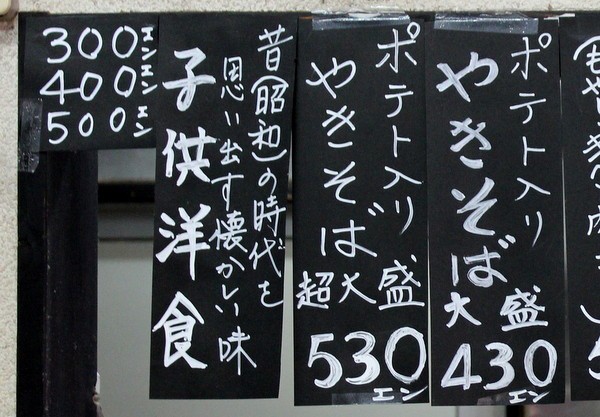 ポテト入り
やきそば
大盛
430エン
ポテト入り
やきそば
超大盛
530エン
昔(昭和)の時代を
思い出す懐かしい味
子供洋食
300エン
400エン
500エン